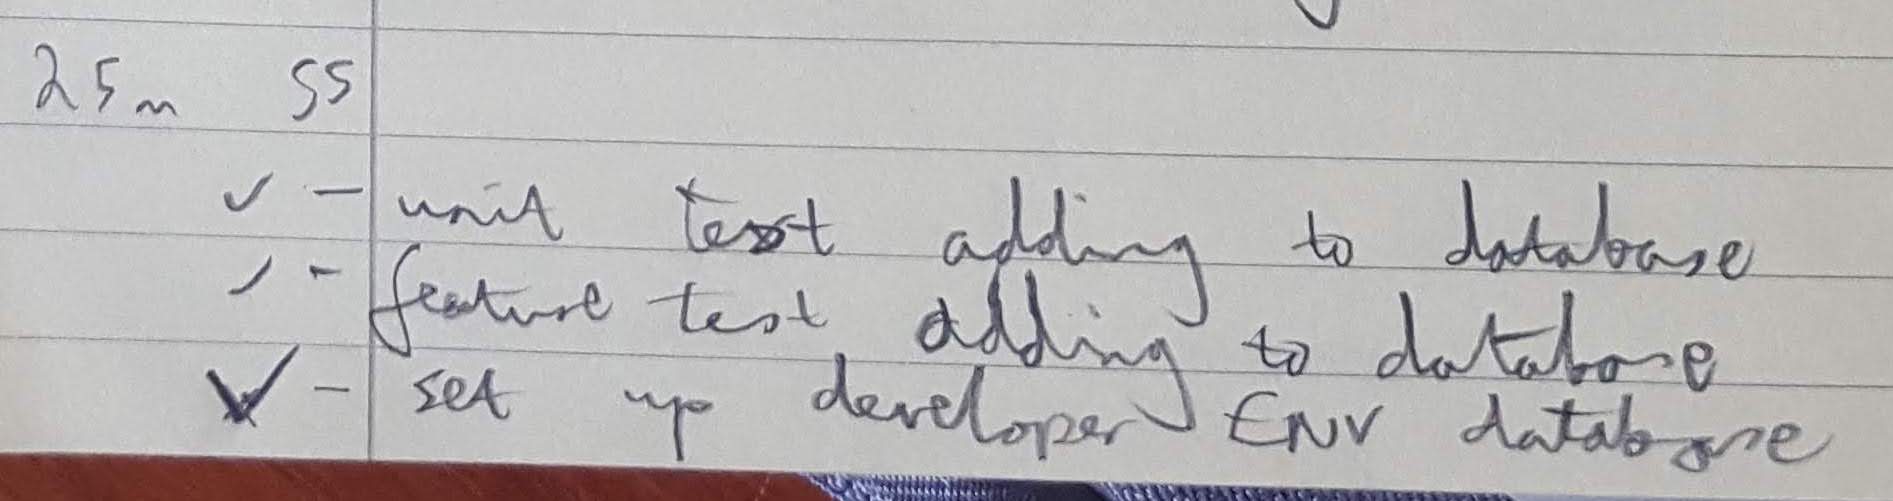 25m SS
✓ - unit test adding to database
✓ - feature test adding to database
✓ - set up developer ENV database